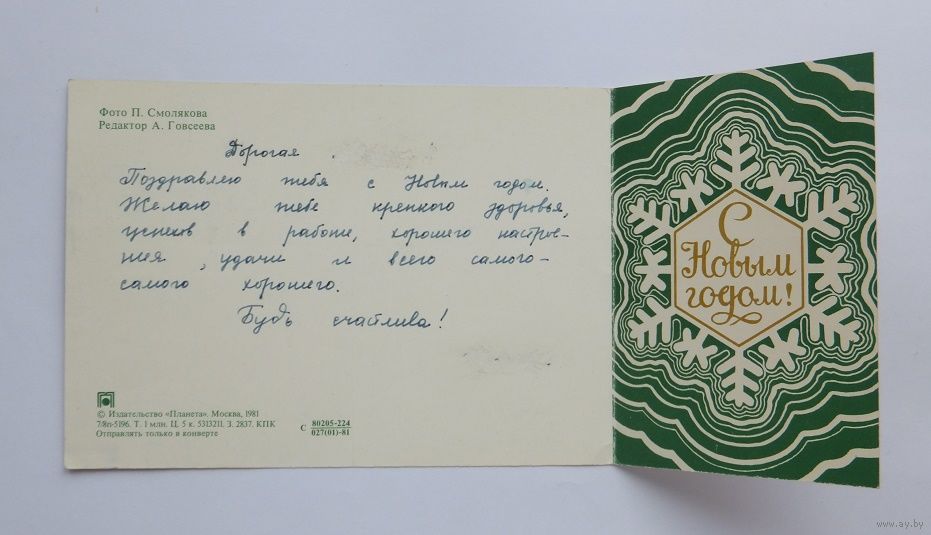 Фото П. Смолякова
Редактор А. Говсеева
Дорогая
Поздравляю тебя с Новым годом.
Желаю тебе крепкого здоровья,
успехов в работе, хорошего настрое-
ния, удачи и всего самого-
самого хорошего.
Будь счастлива!
© Издательство «Планета». Москва, 1981
7/8п-5196. Т. 1 млн. Ц. 5 к. 5313211. З. 2837. КПК
Отправлять только в конверте
С 80205-224
027(01)-81
С
Новым
годом!
www.ay.by